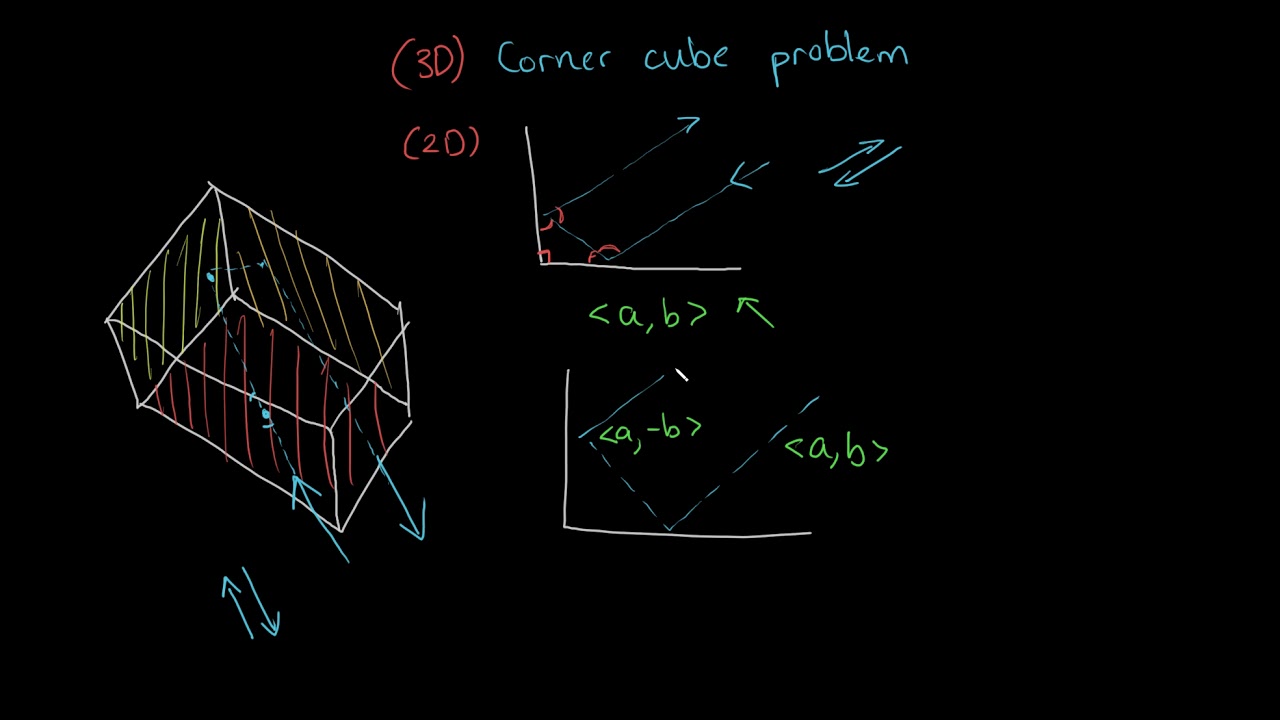 (3D) Corner cube problem
(2D)
<a, b>
<a, -b>
<a, b>